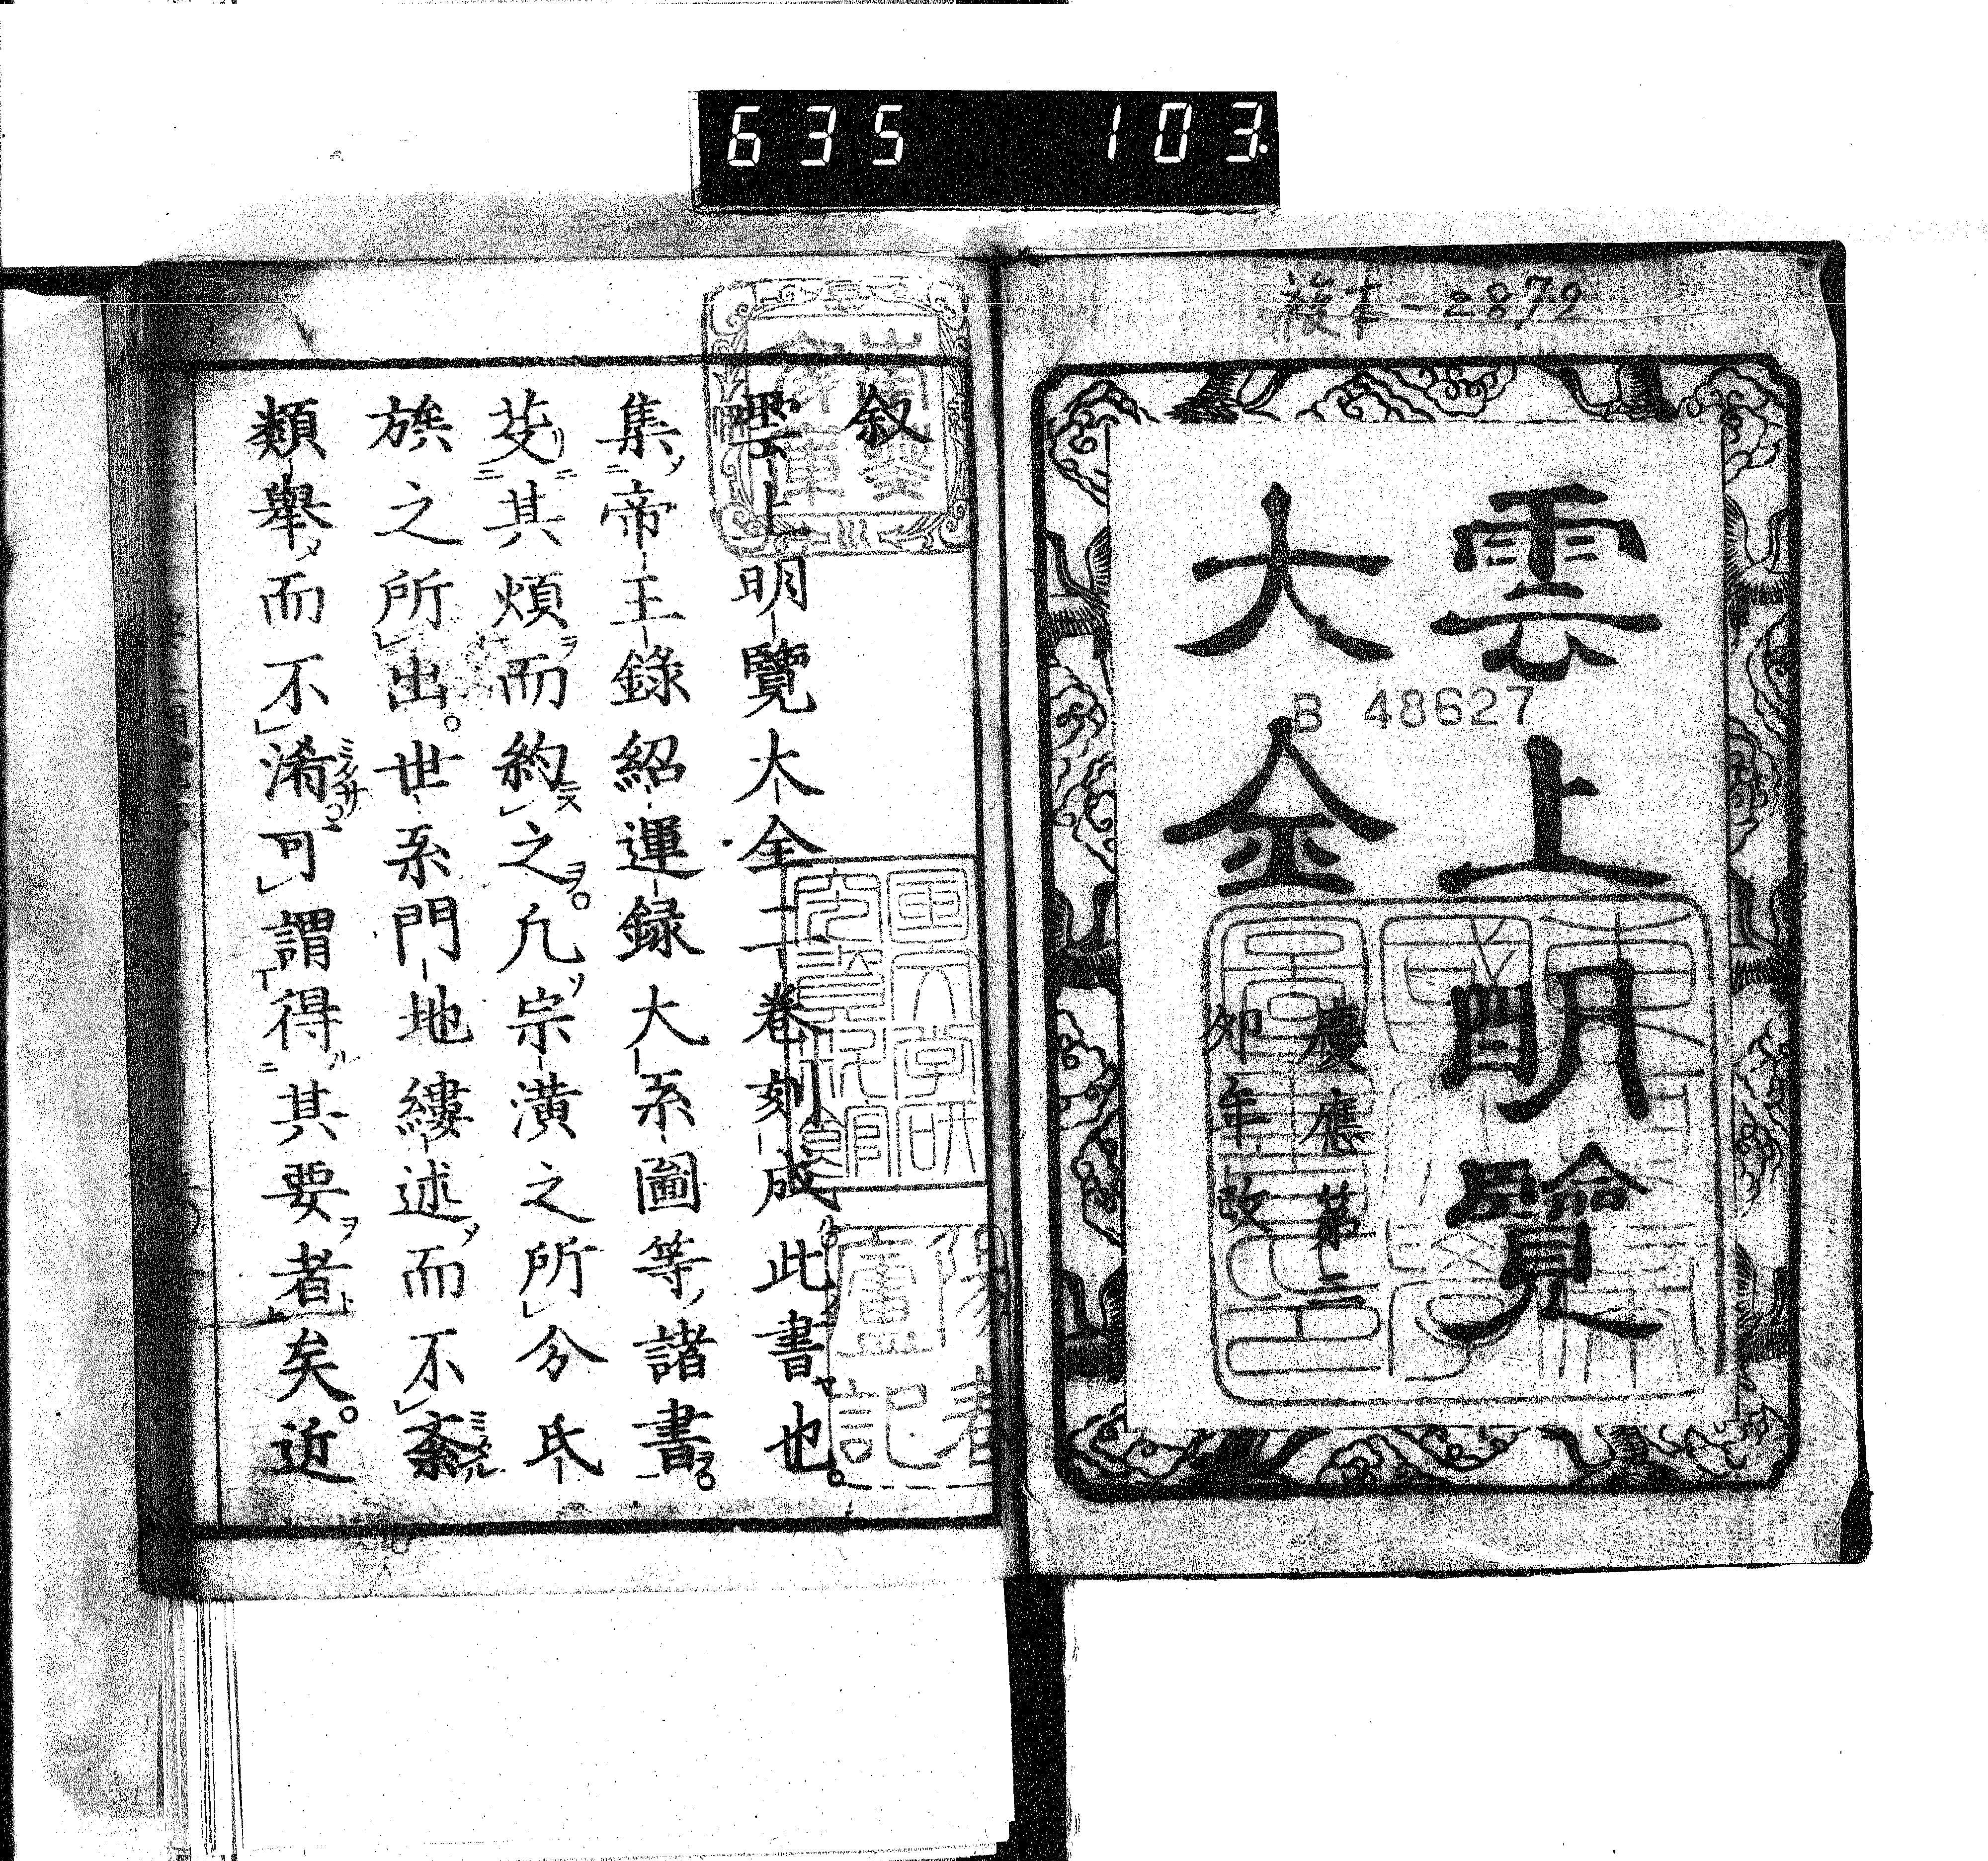 635 103.
複本-2879
雲上明覽
大全
B 48627
慶應第三
夘年改
叙
雲上明覽大全二巻刻成此書也。
集帝王錄紹運録大系圖等諸書。
芟其煩而約之。凢宗潢之所分氏
族之所出。世系門地縷述而不紊
類舉而不淆可謂得其要者矣。近